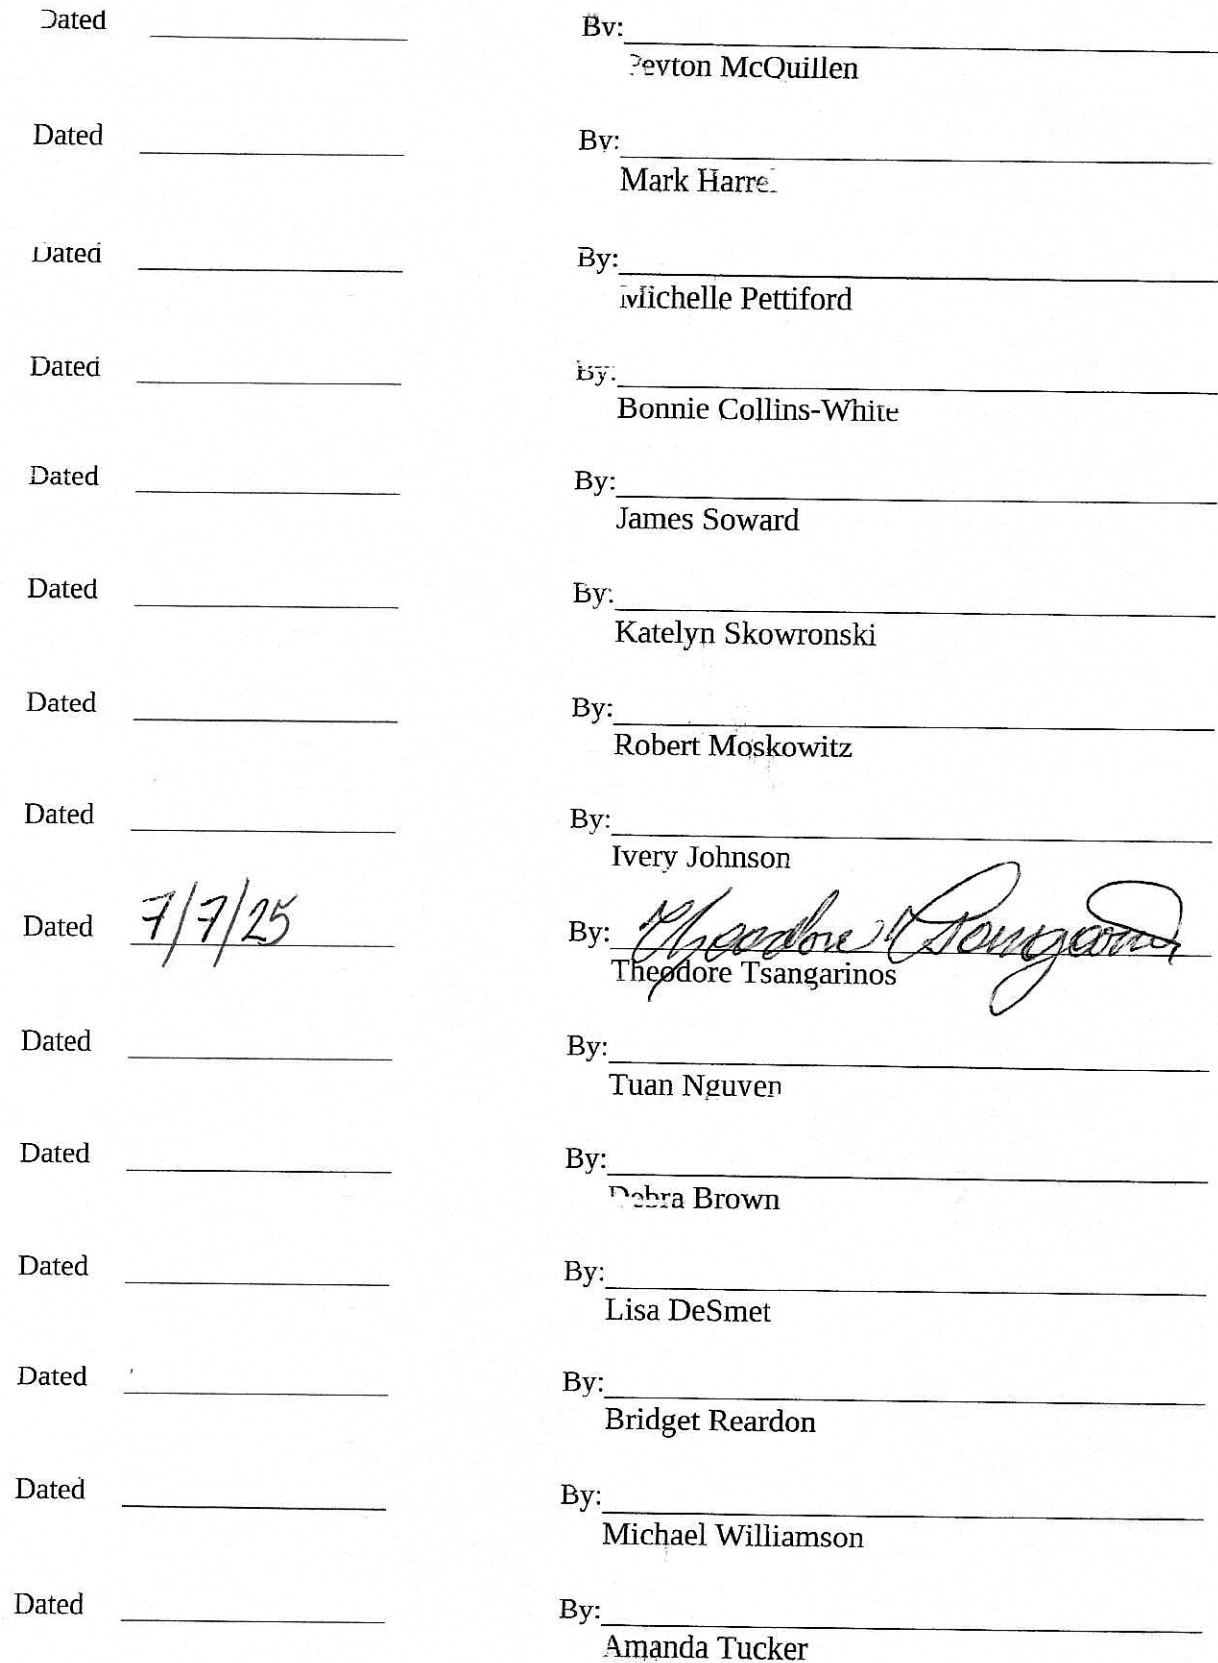 Dated By:
Peyton McQuillen
Dated By:
Mark Harrel
Dated By:
Michelle Pettiford
Dated By:
Bonnie Collins-White
Dated By:
James Soward
Dated By:
Katelyn Skowronski
Dated By:
Robert Moskowitz
Dated By:
Ivery Johnson
Dated 7/7/25 By: Theodore Tsangarinos
Theodore Tsangarinos
Dated By:
Tuan Nguyen
Dated By:
Debra Brown
Dated By:
Lisa DeSmet
Dated By:
Bridget Reardon
Dated By:
Michael Williamson
Dated By:
Amanda Tucker